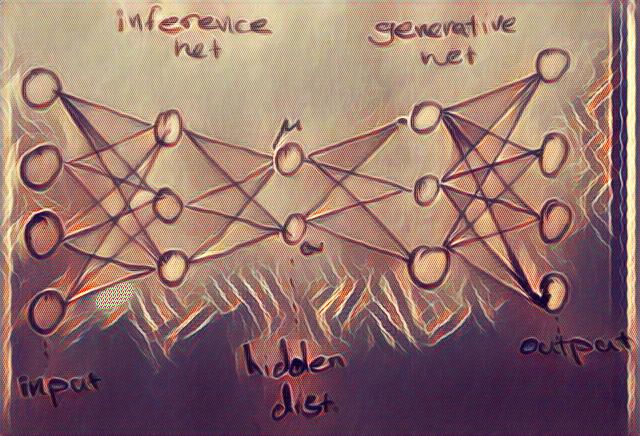 inference
net
generative
net
μ
σ
input
hidden
dist.
output